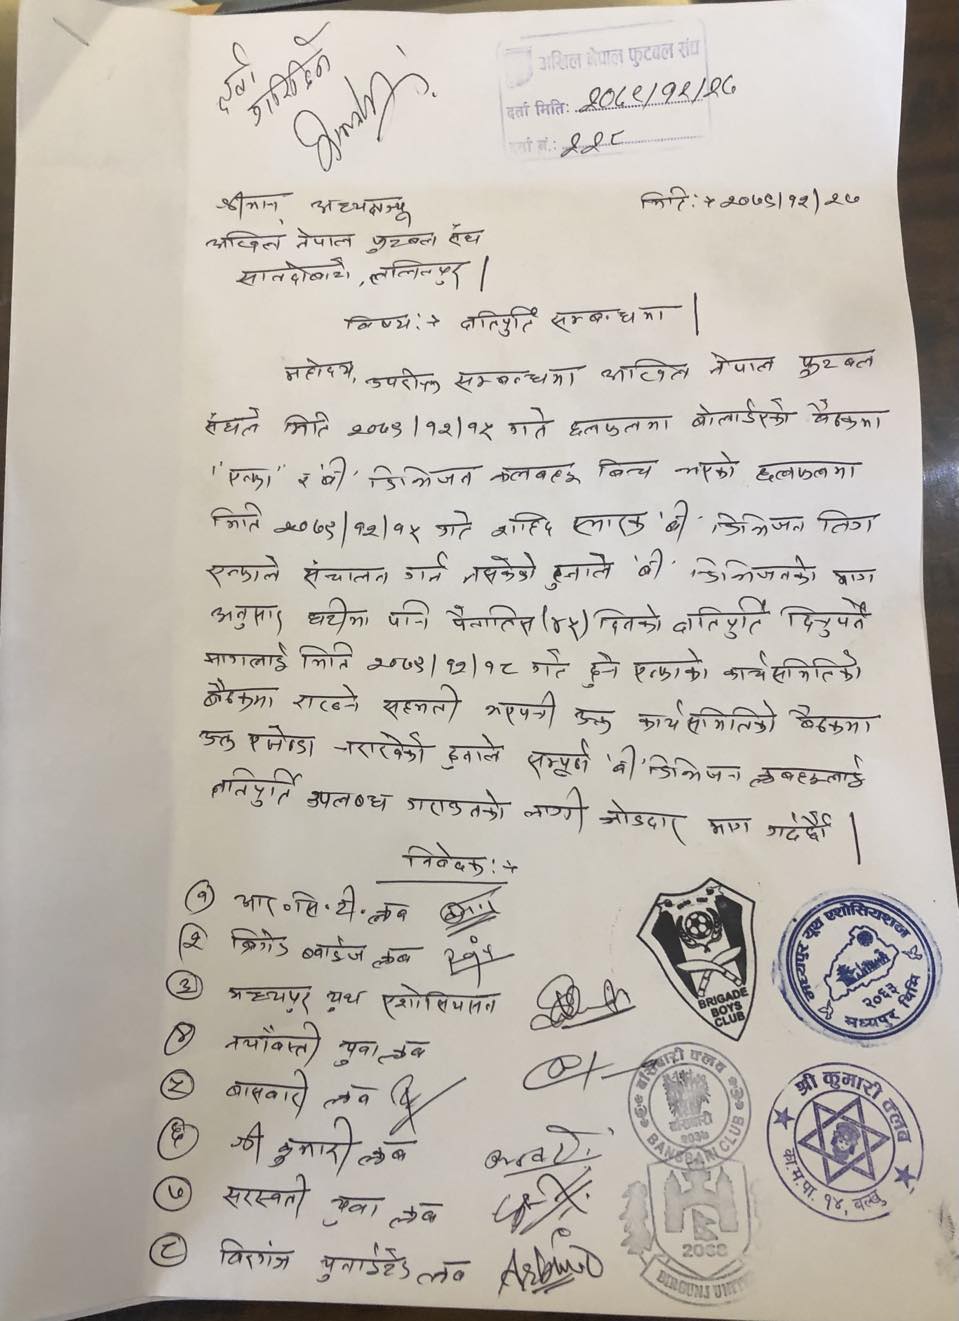 दर्ता
गरिदिने
अखिल नेपाल फुटबल संघ
दर्ता मिति: २०७९/१२/२७
दर्ता नं.: २२८
श्रीमान् अध्यक्षज्यू
मिति:→ २०७९/१२/२७
अखिल नेपाल फुटबल संघ
सातदोबाटो, ललितपुर |
विषय:→ क्षतिपुर्ति सम्बन्धमा |
महोदय, उपरोक्त सम्बन्धमा अखिल नेपाल फुटबल
संघले मिति २०७९/१२/१५ गते छलफलमा बोलाईएको बैठकमा
"एन्फा" र 'बी' डिभिजन क्लबहरू बिच भएको छलफलमा
मिति २०७९/१२/१५ गते शहिद स्मारक 'बी' डिभिजन लिग
एन्फाले संचालन गर्न नसकेको हुनाले 'बी' डिभिजनको माग
अनुसार घटीमा पनि पैतालिस (४५) दिनको क्षतिपुर्ति दिनुपर्ने
मागलाई मिति २०७९/१२/१८ गते हुने एन्फाको कार्यसमितिको
बैठकमा राख्ने सहमती भएपनी उक्त कार्यसमितिको बैठकमा
उक्त एजेण्डा नराखेको हुनाले सम्पूर्ण 'बी' डिभिजन क्लबहरूलाई
क्षतिपुर्ति उपलब्ध गराउनको लागी जोडदार माग गर्दछौं |
निवेदक:→
१ आर.सि.टी. क्लब
२ ब्रिगेड ब्वाईज क्लब
३ मध्यपुर युथ एशोसियसन
४ नयाँबस्ती युवा क्लब
५ बासबारी क्लब
६ श्री कुमारी क्लब
७ सरस्वती युवा क्लब
८ बिरगंज युनाईटेड क्लब
BRIGADE
BOYS
CLUB
मध्यपुर यूथ एशोसियशन
२०६३
मध्यपुर थिमि
बाँसबारी क्लब
बाँसबारी
2036
BANSBARI CLUB
श्री कुमारी क्लब
का.म.पा. १४, बल्खु
BIRGUNJ UNITED